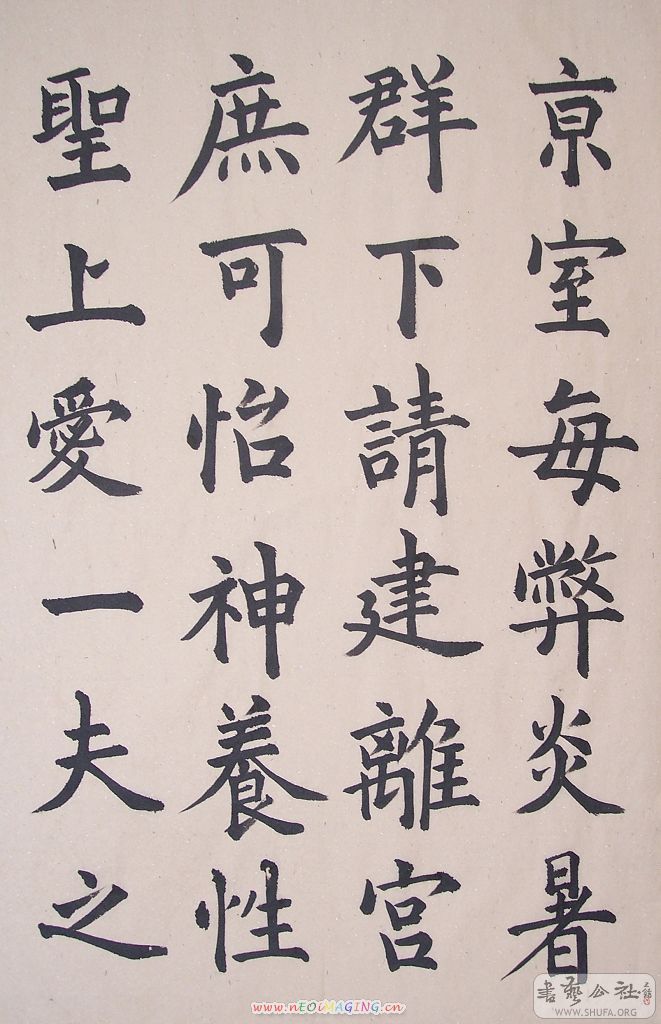 京室每弊炎暑
群下請建離宮
庶可怡神養性
聖上愛一夫之
書藝公社
WWW.SHUFA.ORG
www.nEOiMAGING.cn